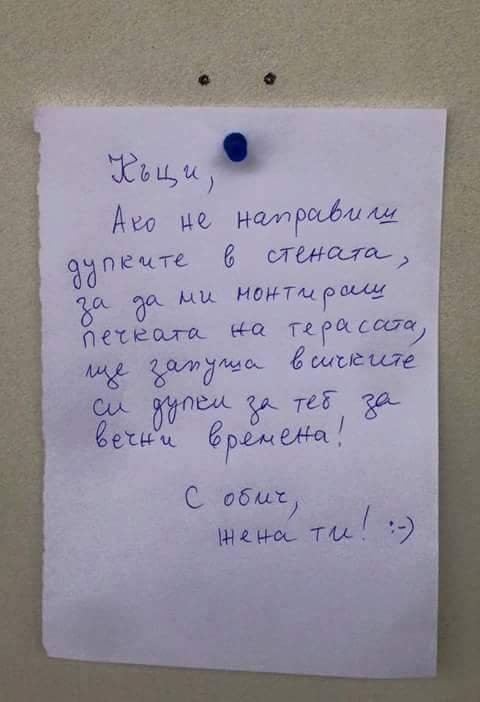 Къци,
Ако не направиш
дупките в стената,
за да ми монтираш
печката на терасата,
ще запуша всичките
си дупки за теб за
вечни времена!
С обич,
жена ти! :-)